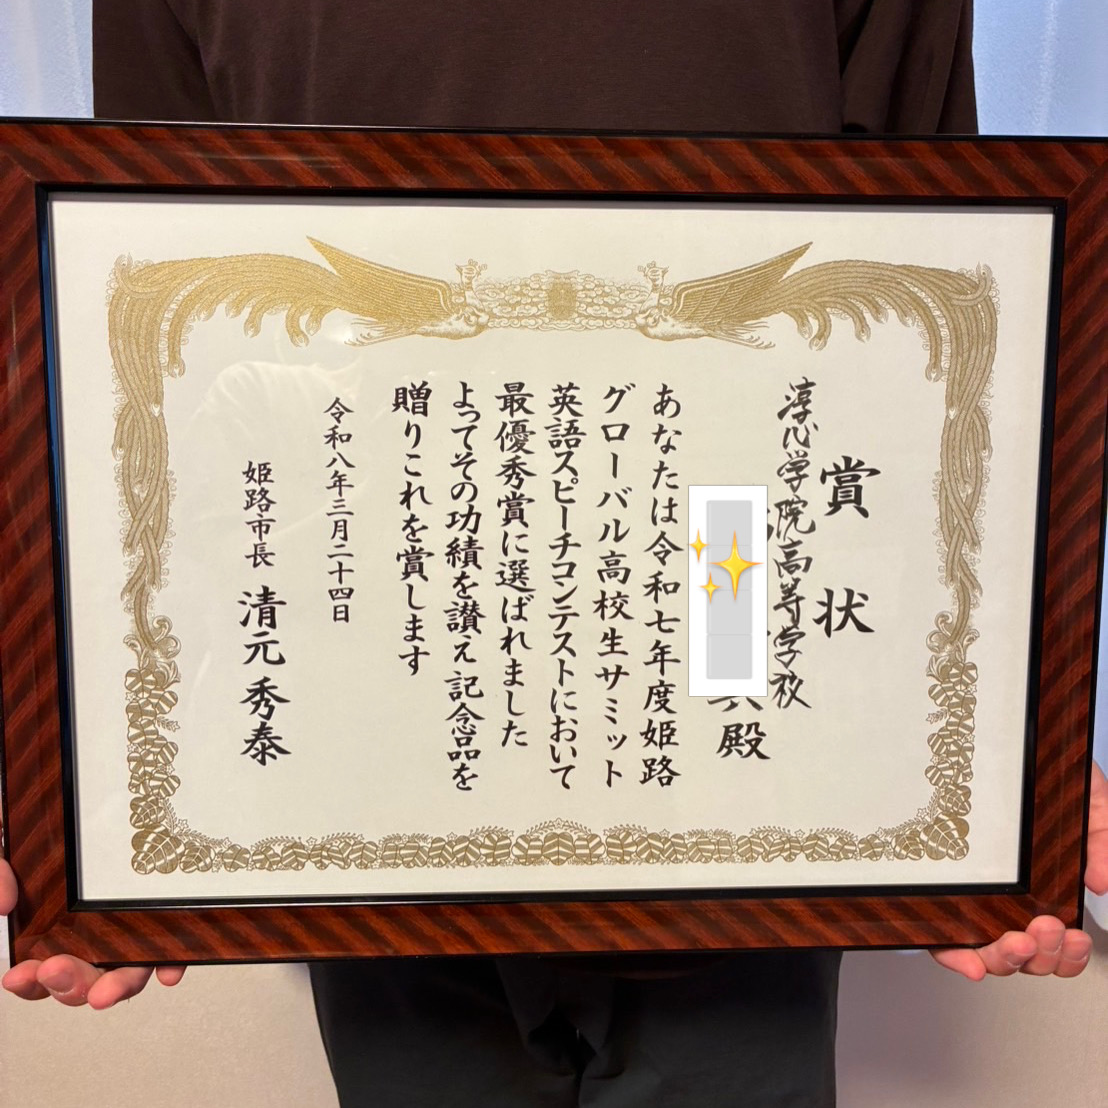 賞状
淳心学院高等学校
殿
あなたは令和七年度姫路
グローバル高校生サミット
英語スピーチコンテストにおいて
最優秀賞に選ばれました
よってその功績を讃え記念品を
贈りこれを賞します
令和八年三月二十四日
姫路市長 清元秀泰